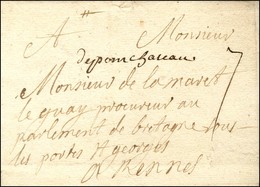 A Monsieur
depomchateau
Monsieur de la maret
le guay procureur au
parlement de bretagne rous
les portes St georges
a Rennes
7